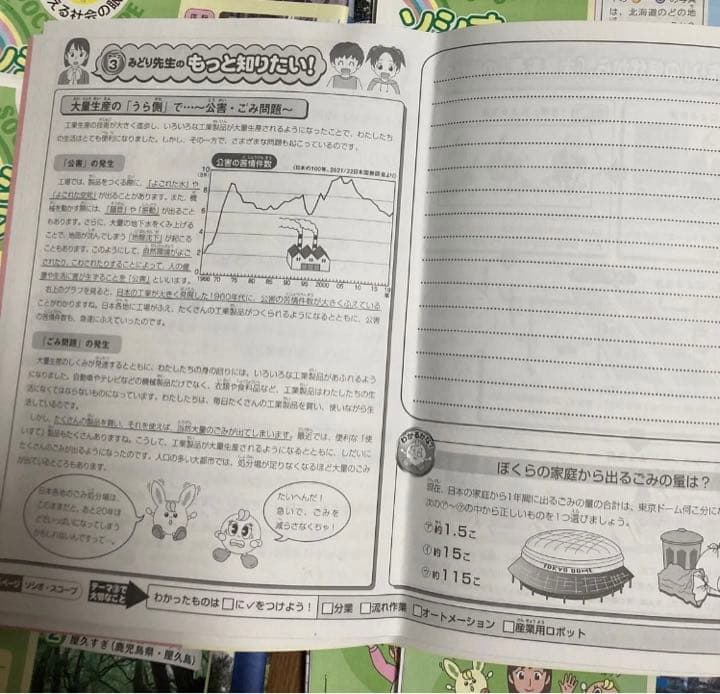 える社会の
ソシオ
は、北海道のどの地
3 みどり先生の もっと知りたい!
大量生産の「うら側」で…～公害・ごみ問題～
工業生産の技術が大きく進歩し、いろいろな工業製品が大量生産されるようになったことで、わたしたち
の生活はとても便利になりました。しかし、その一方で、さまざまな問題も起こっているのです。
「公害」の発生
工場では、製品をつくる際に、「よごれた水」や
「よごれた空気」が出ることがあります。また、機
械を動かす際には、「騒音」や「振動」が出ること
もあります。さらに、大量の地下水をくみ上げる
ことで、地面が沈んでしまう「地盤沈下」が起こる
こともあります。このようにして、自然環境がよ
ごされたり、こわされたりすることによって、人の健
康や生活に害が生ずることを「公害」といいます。
公害の苦情件数
(日本の100年、2021/22日本国勢図会より)
10
8
6
4
2
0
1966 70 75 80 85 90 95 2000 05 10 15 19
右上のグラフを見ると、日本の工業が大きく発展した1960年代に、公害の苦情件数が大きくふえている
ことがわかりますね。日本各地に工場がふえ、たくさんの工業製品がつくられるようになるとともに、公害
の苦情件数も、急速にふえていったのです。
「ごみ問題」の発生
大量生産のしくみが発達するとともに、わたしたちの身の回りには、いろいろな工業製品があふれるよう
になりました。自動車やテレビなどの機械製品だけでなく、衣類や食料品など、工業製品はわたしたちの生
活になくてはならないものになっています。わたしたちは、毎日たくさんの工業製品を買い、使いながら生
活しているのです。
しかし、たくさんの製品を買い、それを使えば、当然大量のごみが出てしまいます。最近では、便利な「使
いすて」製品もたくさんありますね。こうして、工業製品が大量生産されるようになるとともに、しだいに
たくさんのごみが出るようになったのです。人口の多い大都市では、処分場が足りなくなるほど大量のごみ
が出ているところもあります。
日本各地のごみ処分場は、
このままだと、あと20年ほ
どでいっぱいになってしまう
かもしれないんですって…。
たいへんだ!
急いで、ごみを
減らさなくちゃ!
わかるかな?
ぼくらの家庭から出るごみの量は?
現在、日本の家庭から1年間に出るごみの量の合計は、東京ドーム何こ分にな
次の㋐～㋒の中から正しいものを1つ選びましょう。
㋐約1.5こ
㋑約15こ
㋒約115こ
TOKYO DOME
ページ ソシオ・スコープ
テーマ③で大切なこと
わかったものは□に✓をつけよう!
□分業 □流れ作業 □オートメーション □産業用ロボット
2 屋久すぎ(鹿児島県・屋久島)